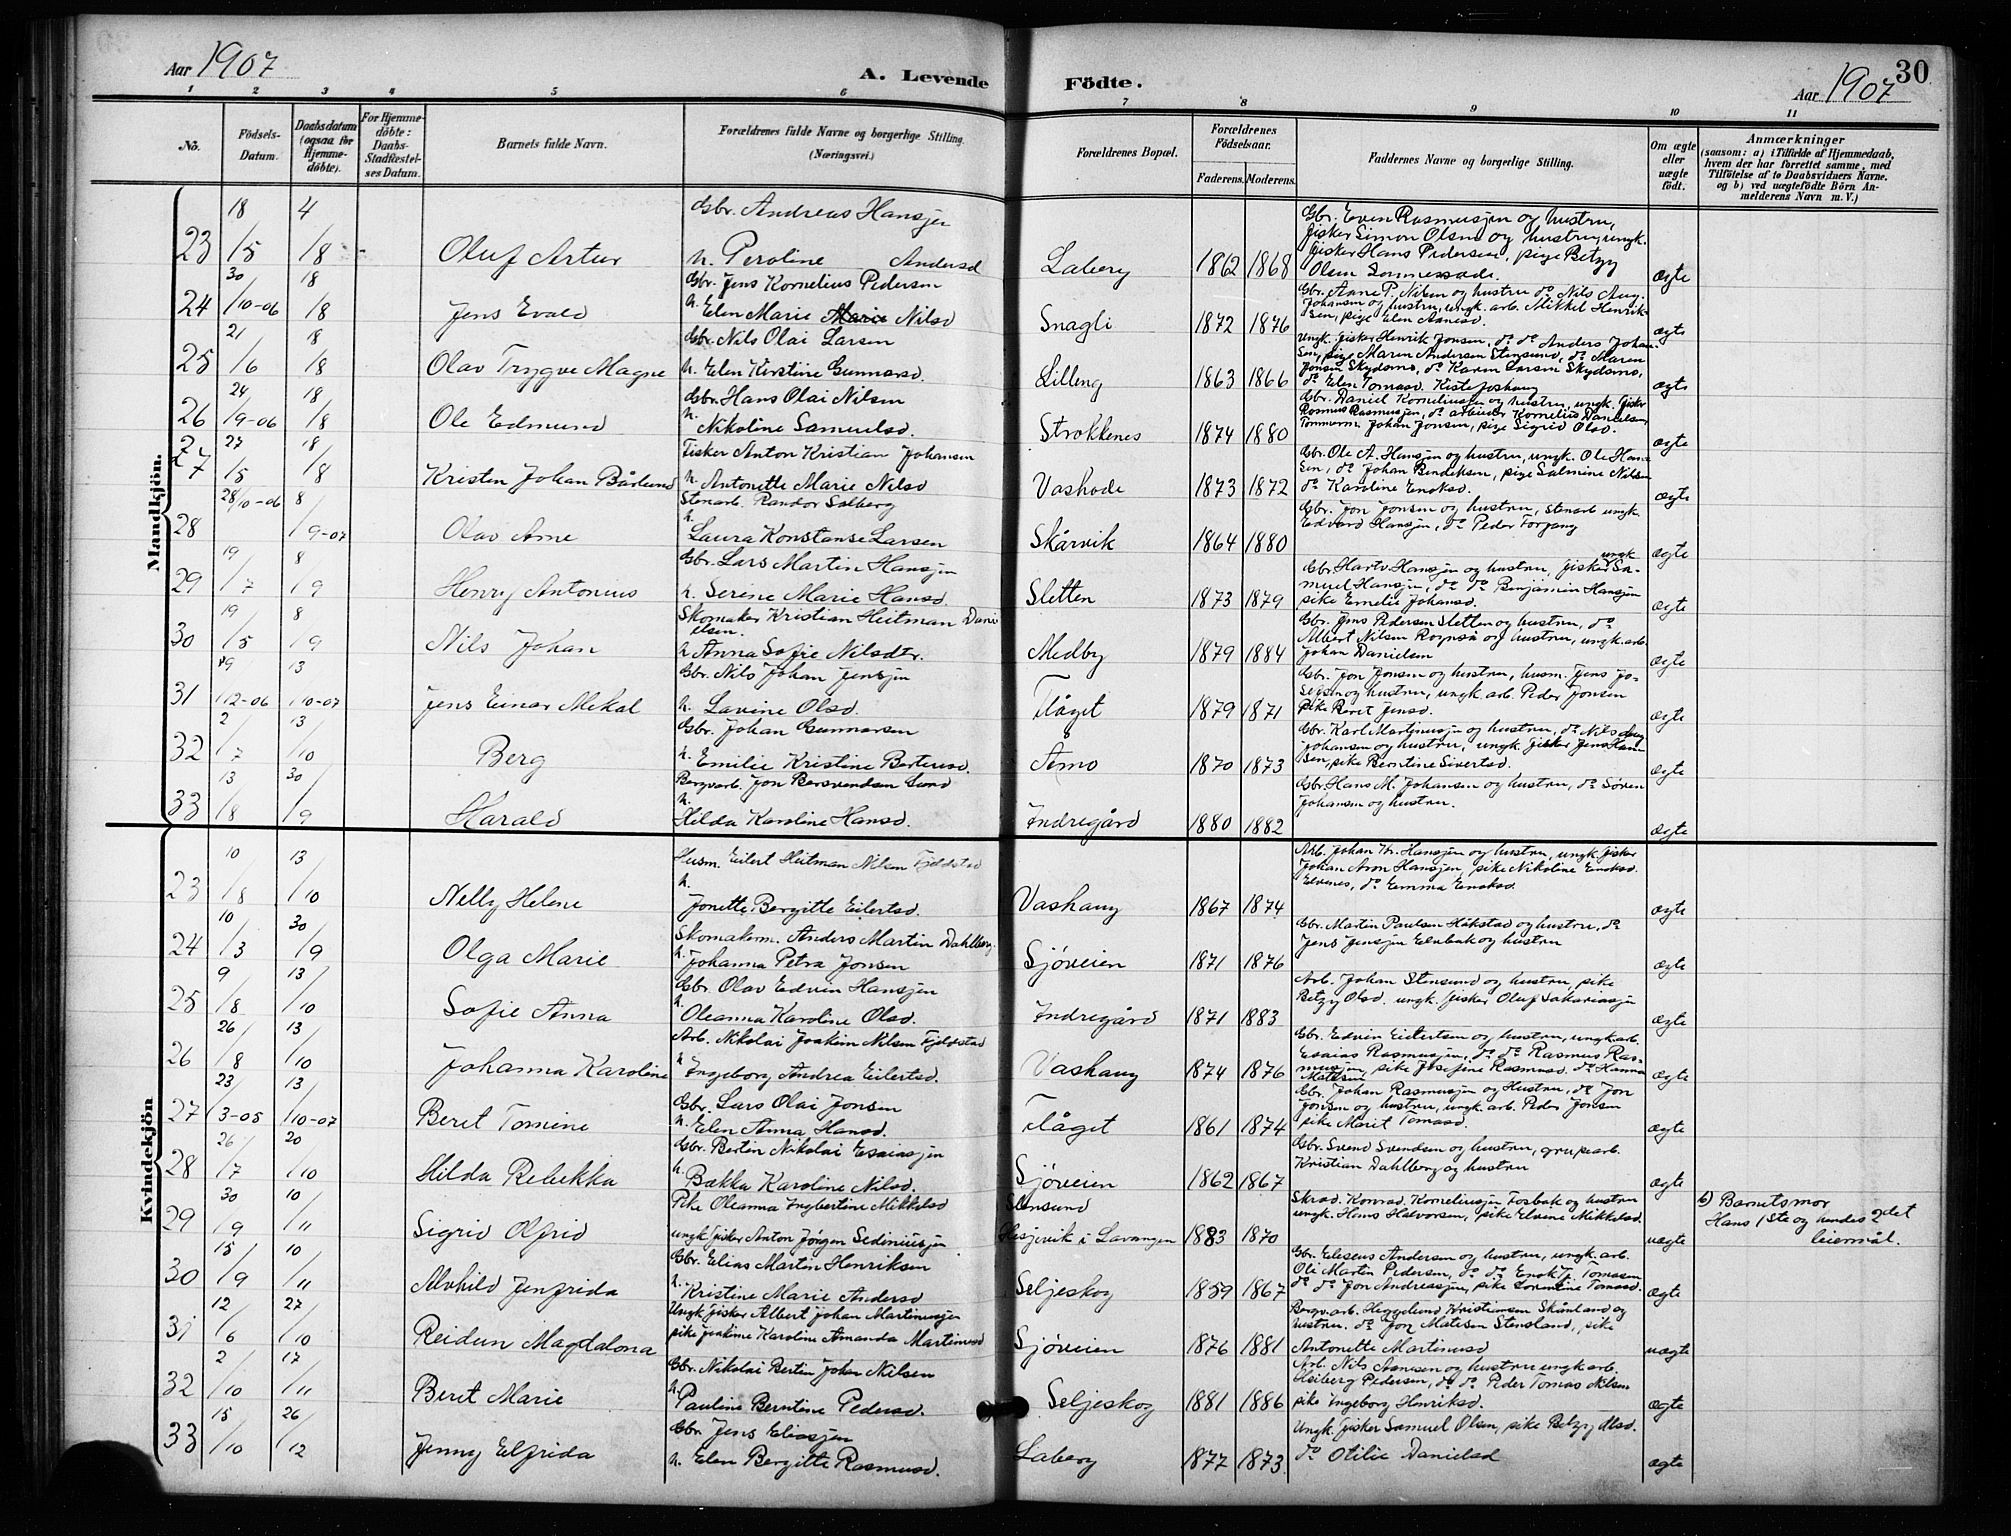 Aar 1907
A. Levende Födte.
Aar 1907
30
1 2 3 4 5 6 7 8 9 10 11
No.
Födsels-Datum.
Daabsdatum (ogsaa for Hjemmedöbte).
For Hjemmedöbte: Daabs-Stadfæstelses Datum.
Barnets fulde Navn.
Forældrenes fulde Navne og borgerlige Stilling. (Næringsvei.)
Forældrenes Bopæl.
Forældrenes Födselsaar.
Faderens. Moderens.
Faddernes Navne og borgerlige Stilling.
Om ægte eller uægte födt.
Anmærkninger
(saasom: a) i Tilfælde af Hjemmedaab, hvem der har forrettet samme, med Tilföielse af to Daabsvidners Navne. og b) ved uægtefödte Börn Anmelderens Navn m. V.)
Mandkjön.
23 18/5 4/8 Oluf Artur
Gbr. Andreas Hansjen
h. Peroline Andersd
Laberg 1862 1868
Gbr. Even Rasmussjen og hustru,
fisker Simon Olsen og hustru, ungk.
fisker Hans Pedersen, pige Betzy
Olsen
ægte
24 30/10-06 18/8 Jens Evald
Gbr. Jens Kornelius Pedersen
h. Elen Marie Nilsd
Snagli 1872 1876
Gbr. Arne P. Nilsen og hustru do Nils Aug.
Johansen og hustru, ungk. arb. Mikkel Henrik-
sen, pige Elen Arnesd.
ægte
25 21/6 18/8 Olav Trygve Magne
Gbr. Nils Olai Larsen
h. Elen Kirstine Gunnarsd.
Lilleng 1863 1866
Ungk. fisker Henrik Jonsen, do do Anders Johan-
sen, pige Maren Andersen Stensund, do Maren
Jensen Skydsmo, do Karen Larsen Skydsmo,
do Elen Tomasd.
ægte
26 24/9-06 18/8 Ole Edmund
Gbr. Hans Olai Nilsen
h. Nikoline Samuelsd.
Strokkenes 1874 1880
Gbr. Daniel Korneliussen og hustru, ungk. fisker
Rasmus Rasmussjen, do arbeider Kornelius Danielsen,
Tømmerm. Johan Jonsen, pige Sigrid Olsd.
ægte
27 27/5 18/8 Kristen Johan Bårlund
Fisker Anton Kristian Johansen
h. Antonette Marie Nilsd
Vashode 1873 1872
Gbr. Ole A. Hansjen og hustru, ungk. Ole Han-
sen, do Johan Bendiksen, pige Salmine Nilsen
do Karoline Enoksd.
ægte
28 28/10-06 8/9-07 Olav Arne
Stenarb. Randor Solberg
h. Laura Konstanse Larsen
Skårvik 1864 1880
Gbr. Jon Jonsen og hustru, stenarb. ungk.
Edvard Hansjen, do Peder Forgang
ægte
29 19/7 8/9 Henry Antonius
Gbr. Lars Martin Hansjen
h. Serene Marie Hansd.
Sletten 1873 1879
Gbr. Hartv. Hansjen og hustru, ungk fisker Sa-
muel Hansjen, do do Benjamin Hansjen
pike Emelie Johansd.
ægte
30 19/5 8/9 Nils Johan
Skomaker Kristian Heitman Dani
elsen.
h Anna Sofie Nilsdtr.
Medby 1879 1884
Gbr. Jens Pedersen Sletten og hustru, do
Albert Nilsen Rognså og hustru, ungk. arb.
Johan Danielsen
ægte
31 19/12-06 13/10-07 Jens Einar Mekal
Gbr. Nils Johan Jensjen
h. Lavine Olsd.
Flåget 1879 1871
Gbr. Jon Jonsen og hustru, husm. Jens Jo-
sefsen og hustru, ungk. arb. Peder Jonsen
Pike Beret Jensd.
ægte
32 2/7 13/10 Berg
Gbr. Johan Gunnarsen
h. Emilie Kristine Berteusd.
Åmo 1870 1873
Gbr. Karl Martinusjen og hustru, do Nils Aug
Johansen og hustru, ungk. fisker Jens Han-
sen, pike Berntine Sivertsd.
ægte
33 13/8 30/9 Harald
Bergvarb. Jon Bersvendsen Lund
h. Hilda Karoline Hansd.
Indregård 1880 1882
Gbr. Hans M. Johansen og hustru, do Søren
Johansen og hustru.
ægte
Kvindekjön
23 10/8 13/10 Nelly Helene
Husm. Eilert Heitman Nilsen Fjeldstad
h. Jonette Bergitte Eilertsd.
Vashaug 1867 1874
Arb. Johan Kr. Hansjen og hustru, ungk. fisker
Johan Aron Hansjen, pike Nikoline Enoksd.
Elvenes, do Emma Enoksd.
ægte
24 10/3 30/9 Olga Marie
Skomakerm. Anders Martin Dahlberg
h. Johanna Petra Jonsen
Sjøveien 1871 1876
Gbr. Martin Paulsen Håkstad og hustru, do
Jens Jensjen Elvebak og hustru
ægte
25 9/8 13/10 Sofie Anna
Gbr. Olav Edvin Hansjen
h. Oleanna Karoline Olsd.
Indregård 1871 1883
Arb. Johan Stensund og hustru, pike
Betzy Olsd. ungk. fisker Oluf Sakariasjen
ægte
26 26/8 13/10 Johanna Karoline
Arb. Nikolai Joakim Nilsen Fjeldstad
h Ingeborg Andrea Eilertsd.
Vashaug 1874 1876
Gbr. Edvin Eilertsen og hustru, ungk. arb.
Esaias Rasmussjen, do do Rasmus Ras-
mussjen, pike Josefine Rasmusd. do Hanna
Matisen
ægte
27 23/3-05 13/10-07 Beret Tomine
Gbr. Lars Olai Jonsen
h. Elen Anna Hansd.
Flåget 1861 1874
Gbr. Johan Rasmussjen og Hustru, do Jon
Jonsen og hustru, ungk. arb. Peder Jonsen
pike Marit Tomasd.
ægte
28 26/7 20/10 Hilda Rebekka
Gbr. Bertin Nikolai Esaiassjen
h. Bækka Karoline Nilsd.
Sjøveien 1862 1867
Gbr. Svend Svendsen og hustru, grubearb.
Kristian Dahlberg og hustru
ægte
29 30/9 10/11 Sigrid Olfrid
Pike Oleanna Ingbertine Mikkelsd
ungk fisker Anton Jørgen Sediniusjen
Stensund
Hesjevik i Lavangen 1883 1870
Skræd. Konrad Korneliussjen Fosbak og hustru
ungk. Hans Halvorsen, pike Elvine Mikkelsd.
uægte
b) Barnetsmor
Hans 1ste og hendes 2det
leiermål.
30 15/9 10/11 Alvhild Jenfrida
Gbr. Elias Martin Henriksen
h. Kristine Marie Andersd
Seljeskog 1859 1867
Gbr. Eliseus Andersen og hustru, ungk. arb.
Ole Martin Pedersen, do do Enok J. Tomassen
do do Jon Andreassjen, pike Lorentine Tomasd.
ægte
31 12/6 27/10 Reidun Magdalona
Ungk fisker Albert Johan Martinussjen
pike Joakime Karoline Amanda Martinusd
Sjøveien 1876 1881
Bergv. arb. Heggelund Kristiansen Skånland og
hustru. do Jon Matisen Stensland, pike
Antonette Martinusd
uægte
32 2/10 17/11 Berit Marie
Gbr. Nikolai Bertin Johan Nilsen
h. Pauline Berntine Pedersd.
Seljeskog 1881 1886
Arb. Nils Arnesen og hustru ungk arb.
Heiberg Pedersen, do do Peder Tomas Nilsen
pike Ingeborg Henriksd.
ægte
33 15/10 26/12 Jenny Elfrida
Gbr. Jens Eliasjen
h. Elen Bergitte Rasmusd.
Laberg 1877 1873
Ungk. fisker Samuel Olsen, pike Betzy Olsd.
do Otilie Danielsd
ægte